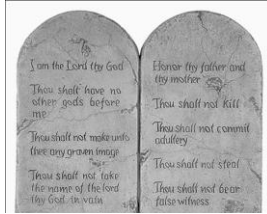 I am the Lord thy God
Thou shalt have no
other gods before
me
Thou shalt not make unto
thee any graven image
Thou shalt not take
the name of the lord
thy God in vain
Honor thy father and
thy mother
Thou shalt not kill
Thou shalt not commit
adultery
Thou shalt not steal
Thou shalt not bear
false witness